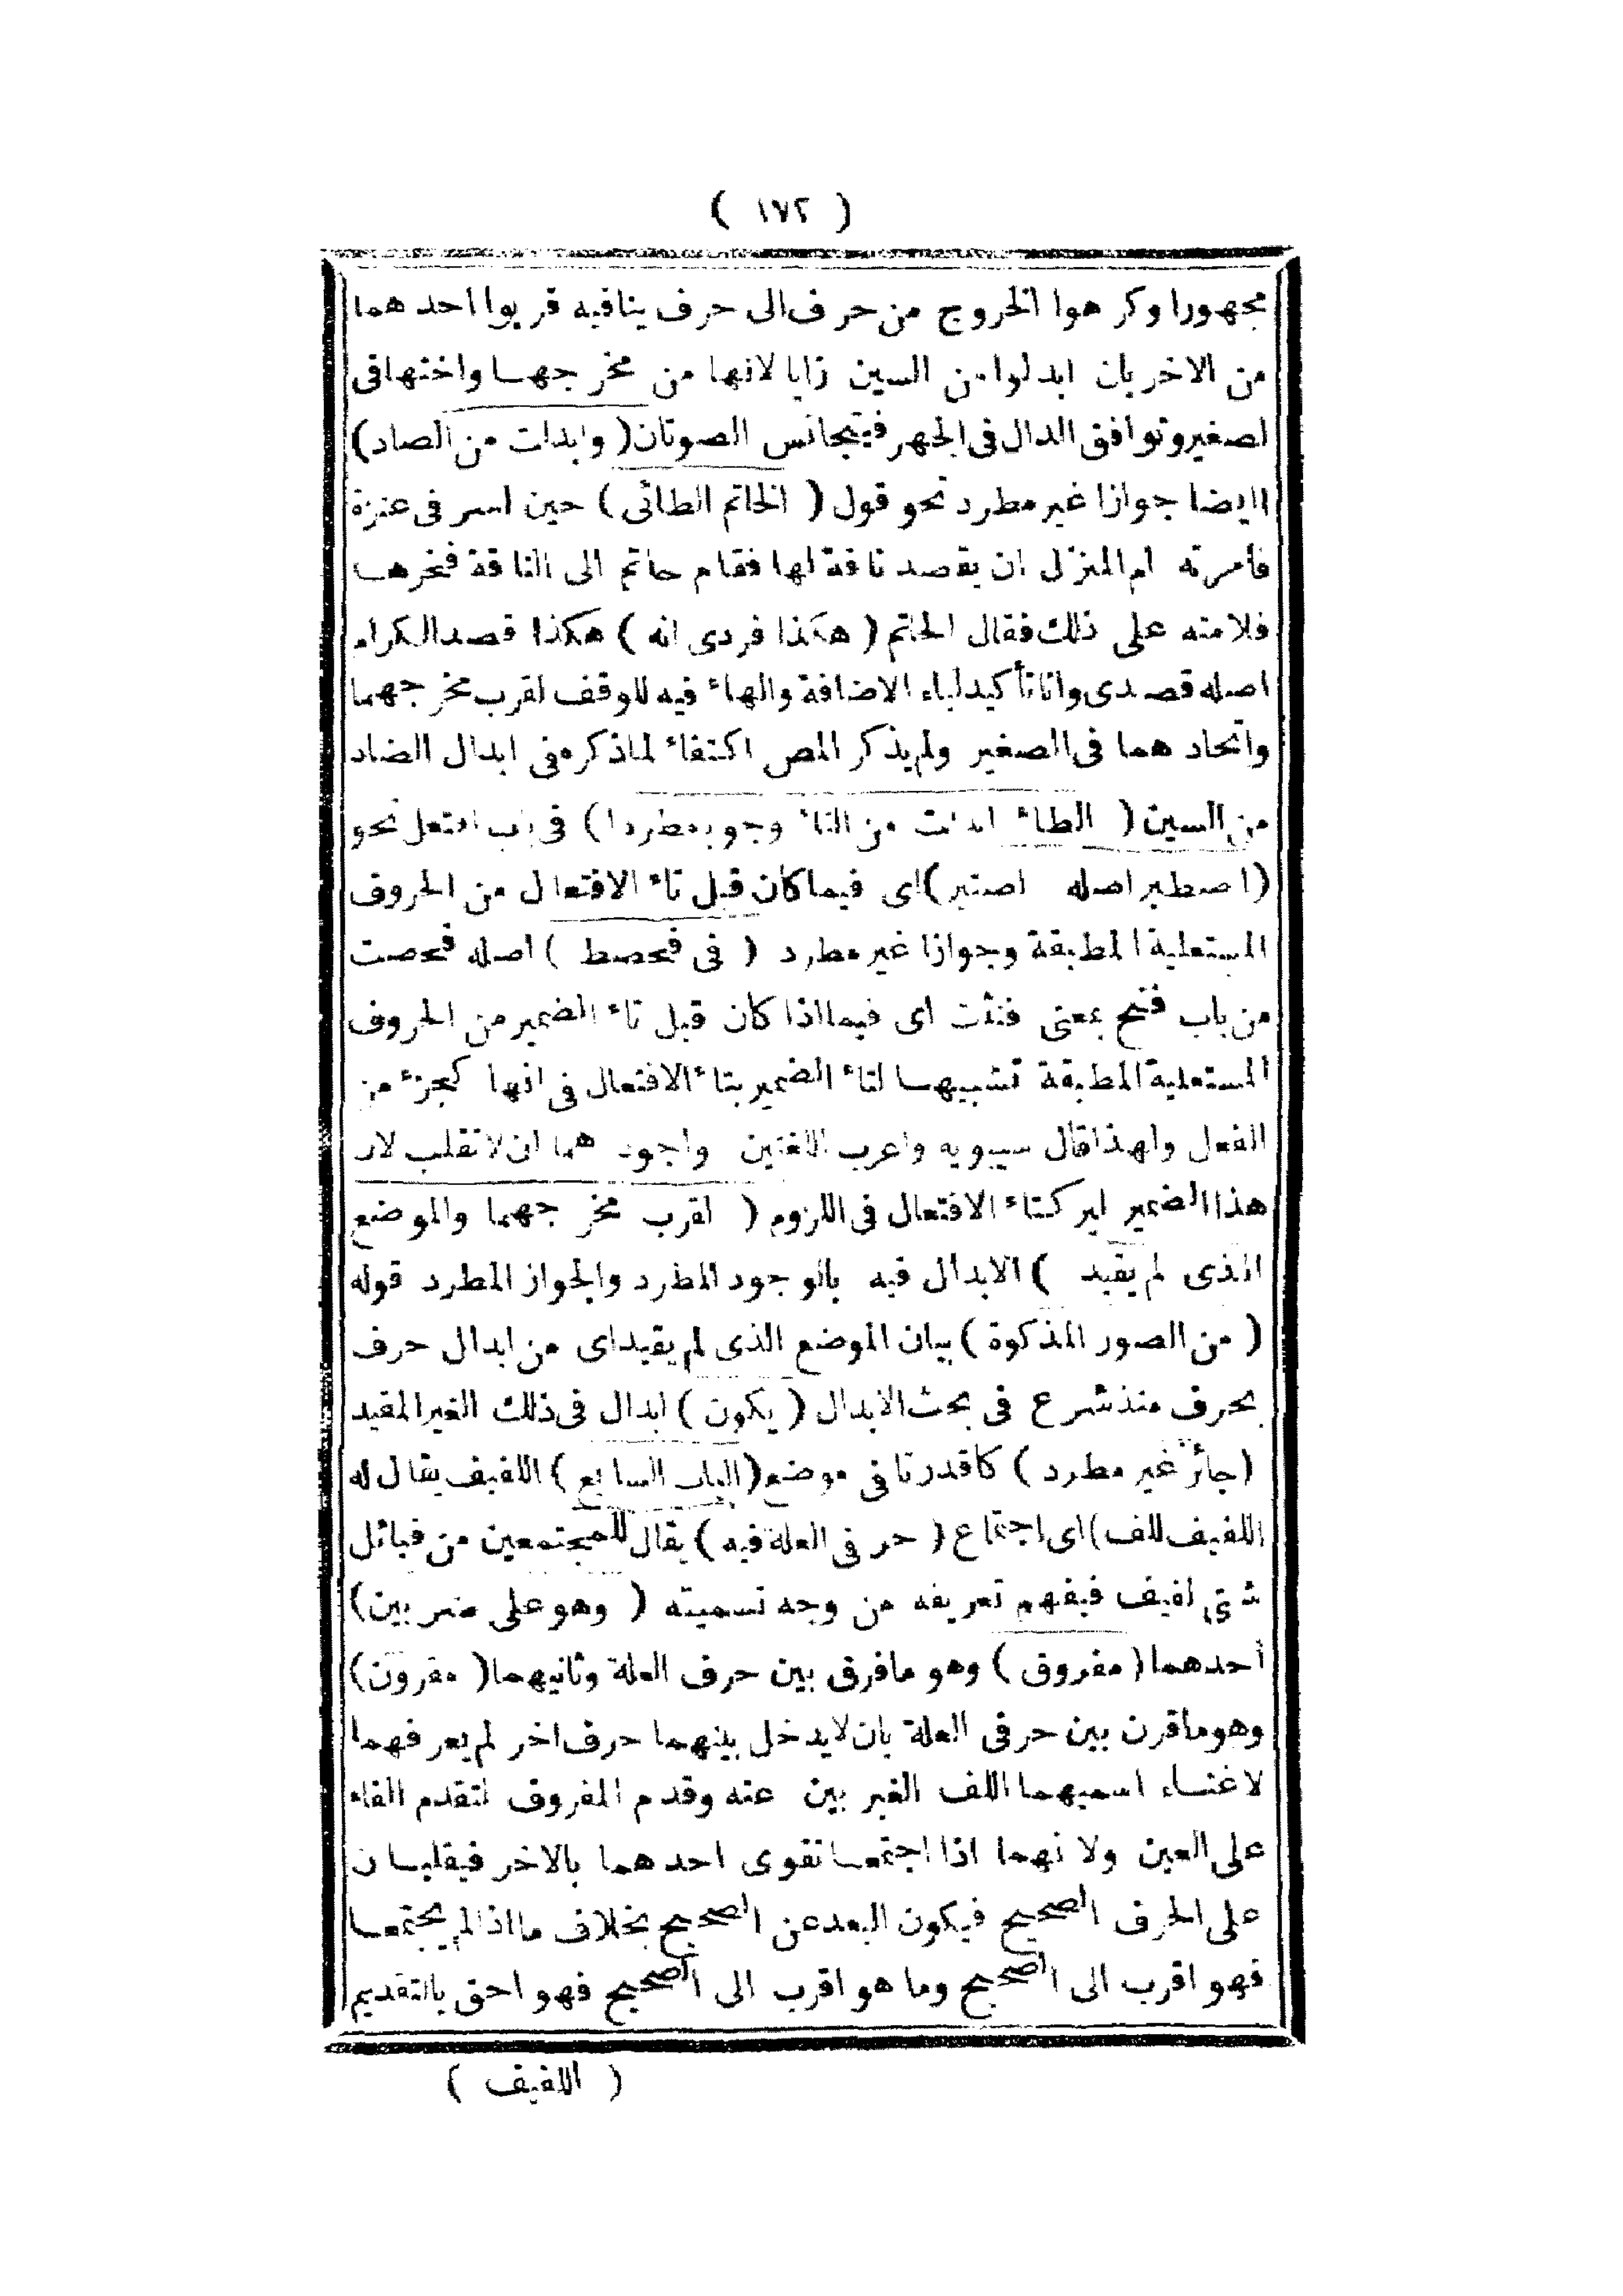 ( ١٧٢ )
مجهورا وكرهوا الخروج من حرف الى حرف ينافيه قربوا احدهما
من الاخر بان ابدلوا من السين زايا لانها من مخرجهما واختها فى
لصغير وتوافق الدال فى الجهر فيتجانس الصوتان ( وابدلت من الصاد )
ايضا جوازا غير مطرد نحو قول ( الخاتم الطائى ) حين اسر فى عنزة
فأمرته ام المنزل ان يقصد ناقة لها فقام حاتم الى الناقة فنحرها
فلامته على ذلك فقال الحاتم ( هكذا فردى انه ) هكذا قصد الكرام
اصله قصدى وانا تأكيد لياء الاضافة والهاء فيه للوقف لقرب مخرجهما
واتحادهما فى الصغير ولم يذكر المص اكتفاء لما ذكره فى ابدال الضاد
من السين ( الطاء ابدلت من التاء وجوبا مطردا ) فى باب افتعل نحو
( اصطبر اصله اصتبر ) اى فيما كان قبل تاء الافتعال من الحروف
المستعلية المطبقة وجوازا غير مطرد ( فى فحصط ) اصله فحصت
من باب فتح بمعنى فتشت اى فيما اذا كان قبل تاء الضمير من الحروف
المستعلية المطبقة تشبيها لتاء الضمير بتاء الافتعال فى انها كجزء من
الفعل ولهذا قال سيبويه واعرب اللغتين واجودهما ان لا تقلب لان
هذا الضمير ليس كتاء الافتعال فى اللزوم ( لقرب مخرجهما والموضع
الذى لم يقيد ) الابدال فيه بالوجود المطرد والجواز المطرد قوله
( من الصور المذكوة ) بيان الموضع الذى لم يقيد اى من ابدال حرف
بحرف منذ شرع فى بحث الابدال ( يكون ) ابدال فى ذلك الغير المقيد
( جائز غير مطرد ) كما قدرنا فى موضع ( الباب السابع ) اللفيف يقال له
اللفيف للف ) اى اجتماع ( حرفى العلة فيه ) يقال للمجتمعين من قبائل
شتى لفيف فيفهم تعريفه من وجه تسميته ( وهو على ضربين )
أحدهما ( مفروق ) وهو ما فرق بين حرف العلة وثانيهما ( مقرون )
وهو ما قرن بين حرفى العلة بان لا يدخل بينهما حرف اخر لم يعرفهما
لاغناء اسميهما اللف الغير بين عنه وقدم المفروق لتقدم الفاء
على العين ولانهما اذا اجتمعا تقوى احدهما بالاخر فيقلبان
على الحرف الصحيح فيكون البعد عن الصحيح بخلاف ما اذا لم يجتمعا
فهو اقرب الى الصحيح وما هو اقرب الى الصحيح فهو احق بالتقديم
( اللفيف )